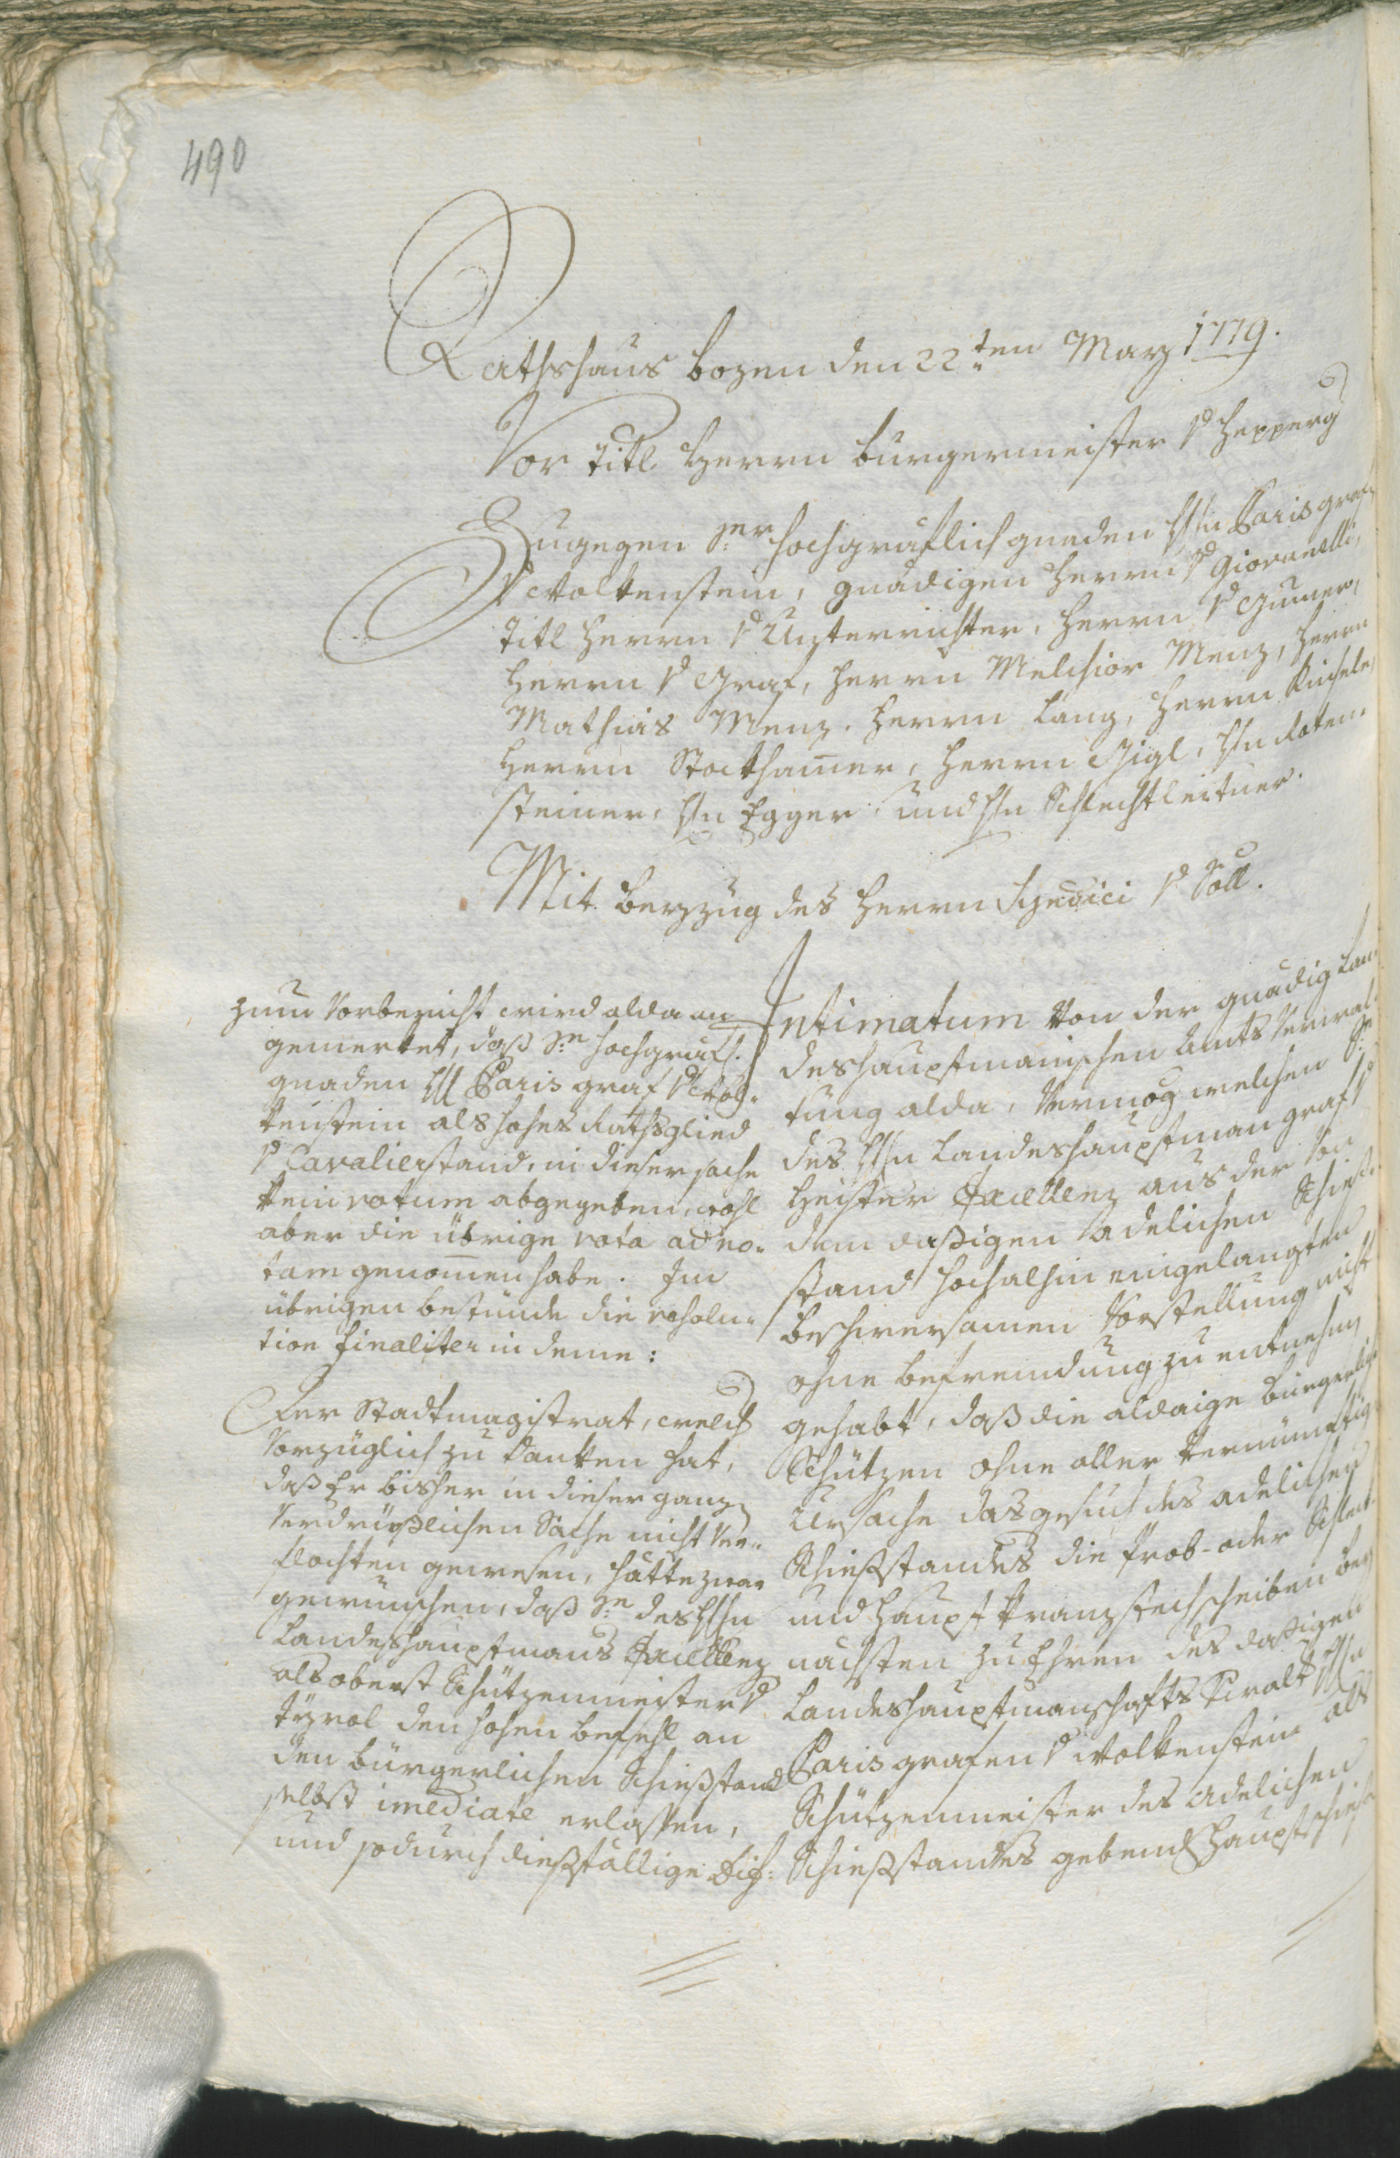 490
Rathshaus bozen den 22.ten Marz 1779.
Vor titl Herrn burgermeister v Hepperg
Zugegen Sr hochgräflich gnaden H/n Paris graf
v Wolkenstein, gnädigen Herrn v Giovanelli,
titl Herrn v Unterrichter, Herrn v Gumer,
Herrn v Graf, Herrn Melchior Menz, Herrn
Mathias Menz. Herrn Lang, Herrn Kinsele,
Herrn Stockhamer, Herrn Gigl, H/n Roten
steiner, H/n Egger und H/n Schlechtleitner.
Mit beyzug des Herrn Syndici v Söll.
zum Vorbericht wird alda an
gemerket, daß Se hochgräfl.
gnaden H/l Paris graf v Wol-
kenstein als hohes Rathsglied
v Cavalierstand, in dieser sache
kein votum abgegeben, wohl
aber die übrige vota ad no-
tam genomen habe. Im
übrigen bestünde die resolu-
tion finaliter in deme:
Der Stadtmagistrat, welch
Vorzüglich zu danken hat,
daß Er bisher in dieser ganz
Verdrüßlichen Sache nicht Ver-
flochten gewesen, hätte zwar
gewunschen, daß Se des H/n
Landeshauptmans Excellenz
als oberst Schützenmeister v
tyrol den hohen befehl an
den bürgerlichen Schießstand
selbst imediate erlassen,
und so durch dießfällige Dif:
Intimatum Von der gnädig Lan
deshauptmanischen Amts Verwal
tung alda, Vermög welchen Sr
des H/n Landeshauptman graf v
Heister Excellenz aus der Von
dem daßigen adelichen Schieß
stand hochalhin eingelangten
beschwersamen Vorstellung nicht
ohne befremdung zu entnehmen
gehabt, daß die aldaige bürgerliche
Schützen ohne aller vernünftig
Ursache das gesuch des adelichen
Schießstandes die Prob- oder Schlecht
und Haupt Kranzstechscheiben bey
nächsten zu Ehren des dasigen
Landeshauptmanschafts Verwalt H/n
Paris grafen v Wolkenstein als
Schützenmeister des adelichen
Schießstandes gebend Hauptschieß